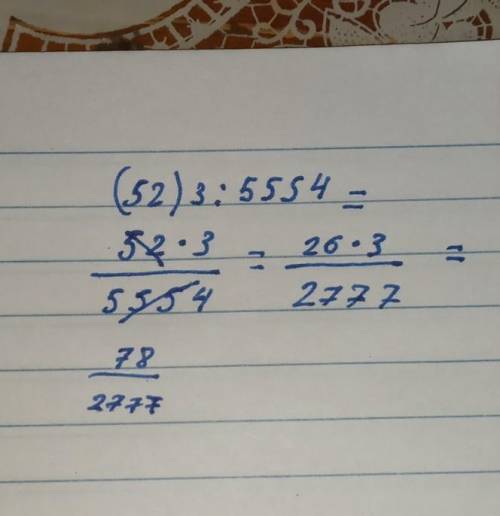 (52)3:5554=
52·3/5554 = 26·3/2777 =
78/2777